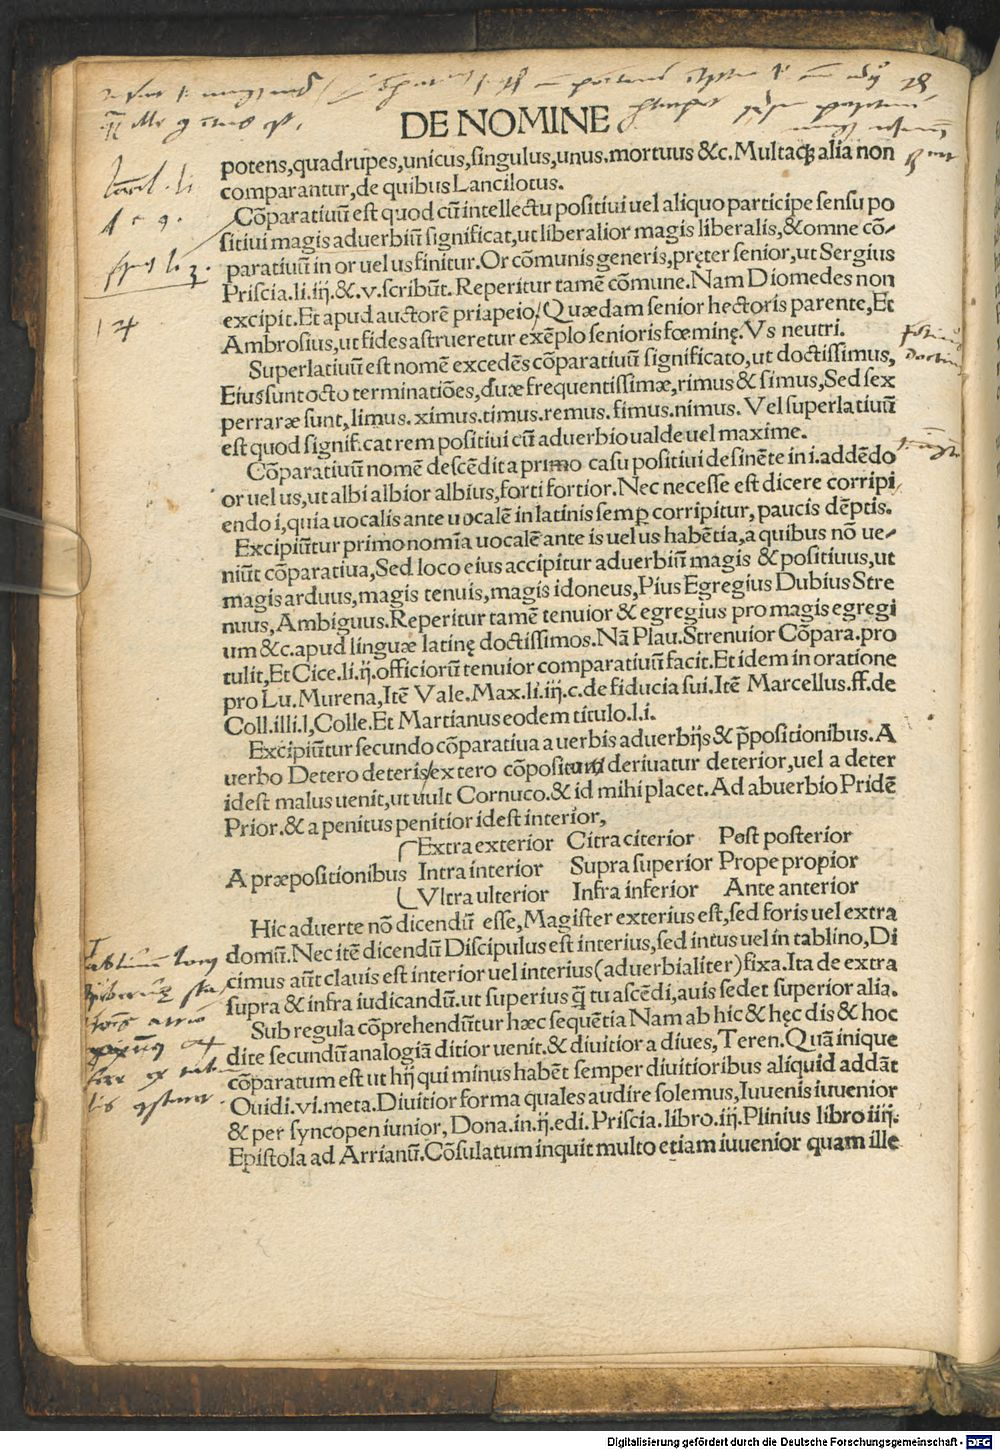 DE NOMINE
potens,quadrupes,unicus,singulus,unus.mortuus &c.Multaqꝫ alia non
comparantur,de quibus Lancilotus.
Cõparatiuũ est quod cũ intellectu positiui uel aliquo participe sensu po
sitiui magis aduerbiũ significat,ut liberalior magis liberalis,&omne cõ-
paratiuũ in or uel us finitur.Or cõmunis generis,pręter senior,ut Sergius
Priscia.li.iij.&.v.scribũt.Reperitur tamẽ cõmune.Nam Diomedes non
excipit.Et apud auctorẽ priapeio/Quædam senior hectoris parente,Et
Ambrosius,ut fides astrueretur exẽplo senioris fœminę.Vs neutri.
Superlatiuũ est nomẽ excedẽs cõparatiuũ significato,ut doctissimus,
Eius sunt octo terminatiões,duæ frequentissimæ,rimus & simus,Sed sex
perraræ sunt,limus.ximus.timus.remus.fimus.nimus.Vel superlatiuũ
est quod significat rem positiui cũ aduerbio ualde uel maxime.
Cõparatiuũ nomẽ descẽdit a primo casu positiui desinẽte in i.addẽdo
or uel us,ut albi albior albius,forti fortior.Nec necesse est dicere corripi
endo i,quia uocalis ante uocalẽ in latinis semꝑ corripitur,paucis dẽptis.
Excipiũtur primo nomĩa uocalẽ ante is uel us habẽtia,a quibus nõ ue-
niũt cõparatiua,Sed loco eius accipitur aduerbiũ magis & positiuus,ut
magis arduus,magis tenuis,magis idoneus,Pius Egregius Dubius Stre
nuus,Ambiguus.Reperitur tamẽ tenuior & egregius pro magis egregi
um &c.apud linguæ latinę doctissimos.Nã Plau.Strenuior Cõpara.pro
tulit,Et Cice.li.ij.officiorũ tenuior comparatiuũ facit.Et idem in oratione
pro Lu.Murena,Itẽ Vale.Max.li.iij.c.de fiducia sui.Itẽ Marcellus.ff.de
Coll.illi.l,Colle.Et Martianus eodem titulo.l.i.
Excipiũtur secundo cõparatiua a uerbis aduerbijs & p̃positionibus.A
uerbo Detero deteris/ex tero cõpositum deriuatur deterior,uel a deter
idest malus uenit,ut uult Cornuco.& id mihi placet.Ad abuerbio Pridẽ
Prior.& a penitus penitior idest interior,
Extra exterior Citra citerior Post posterior
A præpositionibus Intra interior Supra superior Prope propior
Vltra ulterior Infra inferior Ante anterior
Hic aduerte nõ dicendũ esse,Magister exterius est,sed foris uel extra
domũ.Nec itẽ dicendũ Discipulus est interius,sed intus uel in tablino,Di
cimus aũt clauis est interior uel interius(aduerbialiter)fixa.Ita de extra
supra & infra iudicandũ.ut superius q̃ tu ascẽdi,auis sedet superior alia.
Sub regula cõprehenduntur hæc sequẽtia Nam ab hic & hęc dis & hoc
dite secundũ analogiã ditior uenit.& diuitior a diues,Teren.Quã inique
cõparatum est ut hij qui minus habẽt semper diuitioribus aliquid addãt
Ouidi.vi.meta.Diuitior forma quales audire solemus,Iuuenis iuuenior
& per syncopen iunior,Dona.in.ij.edi.Priscia.libro.iij.Plinius libro iiij.
Epistola ad Arrianũ.Cõsulatum inquit multo etiam iuuenior quam ille
Digitalisierung gefördert durch die Deutsche Forschungsgemeinschaft - DFG